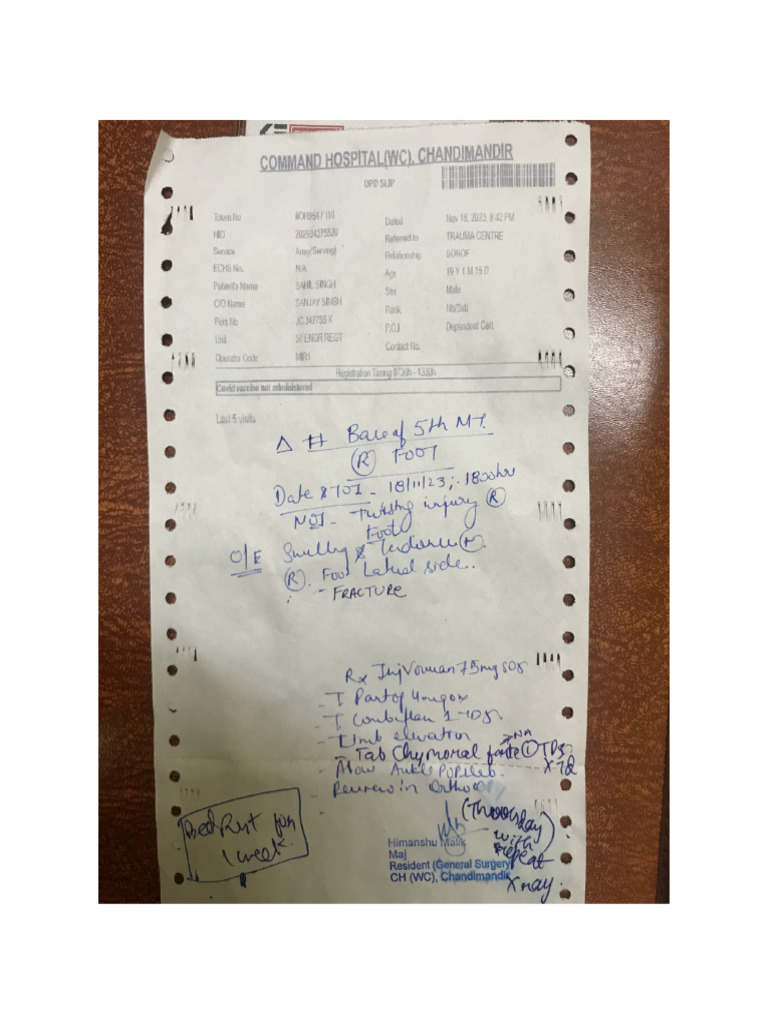 COMMAND HOSPITAL(WC), CHANDIMANDIR
OPD SLIP
Token No
Dated Nov 18, 2023, 8:42 PM
HID
Referred to TRAUMA CENTRE
Service Army(Serving)
Relationship SONOF
ECHS No. N/A
Age 19 Y 1 M 15 D
Patient's Name SAHIL SINGH
Sex Male
C/O Name SANJAY SINGH
Rank Nb/Sub
Pers No JC 342755 X
P.O.I Dependent Cert.
Unit 57 ENGR REGT
Contact No.
Operator Code MIR1
Registration Timing 0730h - 1330h
Covid vaccine not administered
Last 5 visits
Δ # Base of 5th MT.
(R) FOOT
Date & TOI - 18/11/23; 1800hr
NOI - Twisting injury (R)
Foot
O/E Swelling & Tenderness (+)
(R). Foot Lateral side..
- FRACTURE
Rx Inj Voveran 75mg
- T Pantop 40mg
- T Combiflam 1-TDS
- Limb elevation
- Tab Chymoral forte (1) TDS
NA
Review in Ortho OPD
(Thursday)
with
repeat
Xray.
Bed Rest for
1 week.
Himanshu Malik
Maj
Resident (General Surgery)
CH (WC), Chandimandir